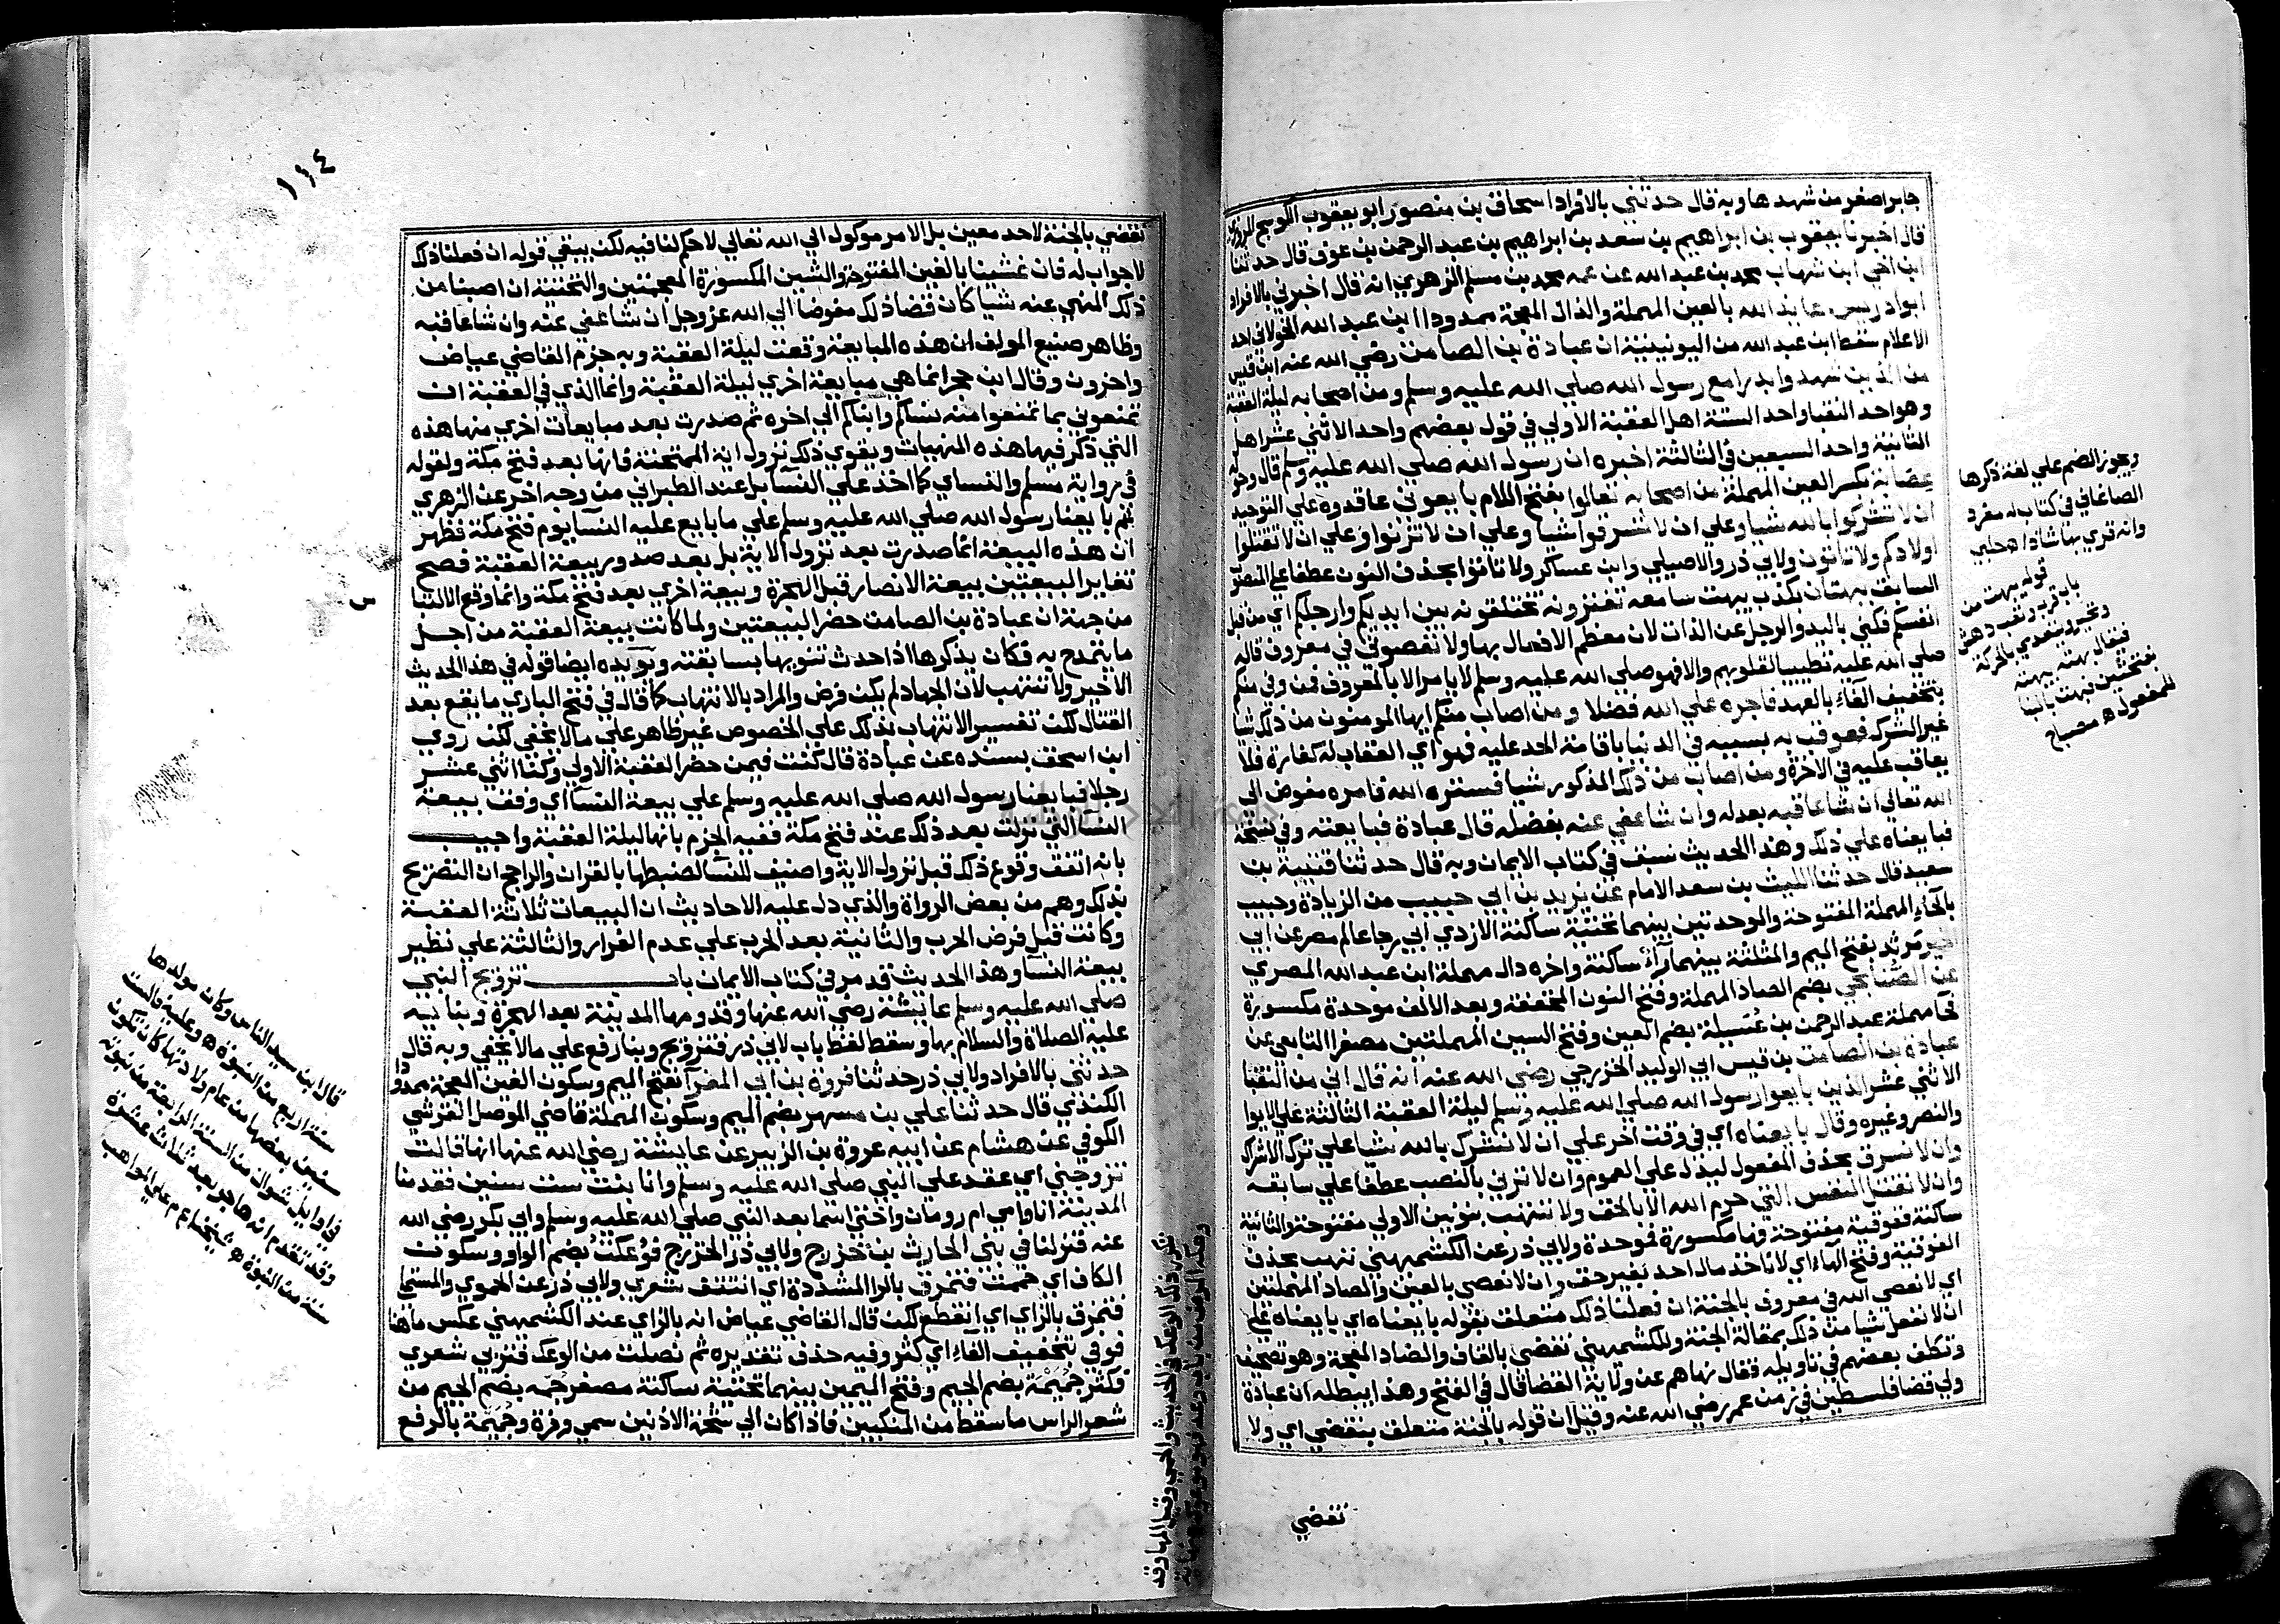 جابر اصغر من شهدها وبه قال حدثني بالافراد اسحاق بن منصور ابو يعقوب الكوسج المروزي
قال اخبرنا يعقوب بن ابراهيم بن سعد بن ابراهيم بن عبد الرحمن بن عوف قال حدثنا
ابن اخي ابن شهاب محمد بن عبد الله عن عمه محمد بن مسلم الزهري انه قال اخبرني بالافراد
ابو ادريس عايذ الله بالعين المهملة والذال المعجمة ممدودا ابن عبد الله الخولاني احد
الاعلام سقط ابن عبد الله من اليونينية ان عبادة بن الصامت رضي الله عنه ابن قيس
من الذين شهدوا بدرا مع رسول الله صلي الله عليه وسلم ومن اصحابه ليلة العقبة
وهو احد النقبا واحد الستة اهل العقبة الاولي في قول بعضهم واحد الاثني عشر اهل
الثانية واحد السبعين في الثالثة اخبره ان رسول الله صلي الله عليه وسلم قال وحوله
عصابة بكسر العين المهملة من اصحابه تعالوا بفتح اللام بايعوني عاقدوه علي التوحيد
ان لا تشركوا بالله شيا وعلي ان لا تسرقوا شيا وعلي ان لا تزنوا وعلي ان لا تقتلوا
اولادكم ولا تاتون ولابي ذر والاصيلي وابن عساكر ولا تاتوا بحذف النون عطفا علي المنصوب
السابق ببهتان بكذب يبهت سامعه تفترونه تختلقونه بين ايديكم وارجلكم اي من قبل
انفسكم فكني باليد والرجل عن الذات لان معظم الافعال بهما ولا تعصوني في معروف قاله
صلي الله عليه تطييبا لقلوبهم والا فهو صلي الله عليه وسلم لا يامر الا بالمعروف فمن وفي منكم
بتخفيف الفاء بالعهد فاجره علي الله فضلا ومن اصاب منكم ايها المومنون من ذلك شيا
غير الشرك فعوقب به بسببه في الدنيا باقامة الحد عليه فهو اي العقاب له كفارة فلا
يعاقب عليه في الاخرة ومن اصاب من ذلك المذكور شيا فستره الله فامره مفوض الي
الله تعالي ان شا عاقبه بعدله وان شا عفي عنه بفضله قال عبادة فبايعته وفي نسخة
فبايعناه علي ذلك وهذا الحديث سبق في كتاب الايمان وبه قال حدثنا قتيبة بن
سعيد قال حدثنا الليث بن سعد الامام عن يزيد بن ابي حبيب من الزيادة وحبيب
بالحاء المهملة المفتوحة والموحدتين بينهما تحتية ساكنة الازدي ابي رجا عالم مصر عن ابي
الخير مرثد بفتح الميم والمثلثة بينهما راء ساكنة واخره دال مهملة ابن عبد الله المصري
عن الصنابحي بضم الصاد المهملة وفتح النون المخففة وبعد الالف موحدة مكسورة
فحا مهملة عبد الرحمن بن عسيلة بضم العين وفتح السين المهملتين مصغرا التابعي عن
عبادة بن الصامت بن قيس ابي الوليد الخزرجي رضي الله عنه انه قال اني من النقبا
الاثني عشر الذين بايعوا رسول الله صلي الله عليه وسلم ليلة العقبة الثالثة علي الايوا
والنصر وغيره وقال بايعناه اي في وقت اخر علي ان لا نشرك بالله شيا علي ترك الاشراك
وان لا نسرق بحذف المفعول ليدل علي العموم وان لا نزني بالنصب عطفا علي سابقه
وان لا نقتل النفس التي حرم الله الا بالحق ولا ننتهب بنونين الاولي مفتوحة والثانية
ساكنة ففوقية مفتوحة فها مكسورة فموحدة ولابي ذر عن الكشميهني ننهب بحذف
الفوقية وفتح الهاء اي لا ناخذ مال احد بغير حق وان لا نعصي بالعين والصاد المهملتين
اي لا نعصي الله في معروف بالجنة ان فعلنا ذلك متعلق بقوله بايعناه اي بايعناه علي
ان لا نفعل شيا من ذلك بمقابلة الجنة وللكشميهني نقضي بالقاف والضاد المعجمة وهو تصحيف
وتكلف بعضهم في تاويله فقال نهاهم عن ولاية القضا قال في الفتح وهذا يبطله ان عبادة
ولي قضا فلسطين في زمن عمر رضي الله عنه وقيل ان قوله بالجنة متعلق بنقضي اي ولا
نقضي
ويجوز الضم علي لغة ذكرها
الصاغاني في كتاب له مفرد
وانه قري بها شاذا ه حلبي
قوله يبهت من
باب قرب وتعب دهش
وتحير ويتعدي بالحركة
فيقال بهته يبهته
بفتحتين فبهت بالبنا
للمفعول ه مصباح
١١٤
نقضي بالجنة لاحد معين بل الامر موكول الي الله تعالي لا حكم لنا فيه لكن يبقي قوله ان فعلنا ذلك
لا جواب له فان غشينا بالغين المفتوحة والشين المكسورة المعجمتين والتحتية ان اصبنا من
ذلك المنهي عنه شيا كان قضا ذلك مفوضا الي الله عز وجل ان شا عفي عنه وان شا عاقبه
وظاهر صنيع المولف ان هذه المبايعة وقعت ليلة العقبة وبه جزم القاضي عياض
واخرون وقال ابن حجر انما هي مبايعة اخري ليلة العقبة وانما الذي في العقبة ان
تمنعوني بما تمنعوا منه نساكم وابناكم الي اخره ثم صدرت بعد مبايعات اخري منها هذه
التي ذكر فيها هذه المنهيات ويقوي ذلك نزول اية الممتحنة فانها بعد فتح مكة ولقوله
في رواية مسلم والنساي كما اخذ علي النسا بل عند الطبراني من وجه اخر عن الزهري
ثم بايعنا رسول الله صلي الله عليه وسلم علي ما بايع عليه النسا يوم فتح مكة فظهر
ان هذه البيعة انما صدرت بعد نزول الاية بل بعد صدور بيعة العقبة فصح
تغاير البيعتين بيعة الانصار قبل الهجرة وبيعة اخري بعد فتح مكة وانما وقع الالتباس
من جهة ان عبادة بن الصامت حضر البيعتين ولما كانت بيعة العقبة من اجل
ما يتمدح به فكان يذكرها اذا حدث تنويها بسابقته ويويده ايضا قوله في هذا الحديث
الاخير ولا ننتهب لان الجهاد لم يكن فرض والمراد بالانتهاب كما قال في فتح الباري ما يقع بعد
القتال لكن تفسير الانتهاب بذلك علي الخصوص غير ظاهر علي ما لا يخفي لكن روي
ابن اسحق بسنده عن عبادة قال كنت فيمن حضر العقبة الاولي وكنا اثني عشر
رجلا فبايعنا رسول الله صلي الله عليه وسلم علي بيعة النسا اي وفق بيعة
النسا التي نزلت بعد ذلك عند فتح مكة ففيه الجزم بانها ليلة العقبة واجيب
بانه اتفق وقوع ذلك قبل نزول الاية واضيف للنسا لضبطها بالقران والراجح ان التصريح
بذلك وهم من بعض الرواة والذي دل عليه الاحاديث ان البيعات ثلاثة العقبة
وكانت قبل فرض الحرب والثانية بعد الحرب علي عدم الفرار والثالثة علي نظير
بيعة النسا وهذا الحديث قد مر في كتاب الايمان باب تزويج النبي
صلي الله عليه وسلم عايشة رضي الله عنها وقدومها المدينة بعد الهجرة وبنايه
عليه الصلاة والسلام بها وسقط لفظ باب لابي ذر فتزويج وبنا رفع علي ما لا يخفي وبه قال
حدثني بالافراد ولابي ذر حدثنا فروة بن ابي المغرا بفتح الميم وسكون الغين المعجمة ممدودا
الكندي قال حدثنا علي بن مسهر بضم الميم وسكون المهملة قاضي الموصل القرشي
الكوفي عن هشام عن ابيه عروة بن الزبير عن عايشة رضي الله عنها انها قالت
تزوجني اي عقد علي النبي صلي الله عليه وسلم وانا بنت ست سنين فقدمنا
المدينة انا وامي ام رومان واختي اسما بعد النبي صلي الله عليه وسلم وابي بكر رضي الله
عنه فنزلنا في بني الحارث بن خزرج ولابي ذر الخزرج فوعكت بضم الواو وسكون
الكاف اي حممت فتمرق بالرا المشددة اي انتتف شعري ولابي ذر عن الحموي والمستملي
فتمزق بالزاي اي انقطع لكن قال القاضي عياض انه بالزاي عند الكشميهني عكس ما هنا
فوفي بتخفيف الفاء اي كثر وفيه حذف تقديره ثم نصلت من الوعك فتربي شعري
فكثر جميمة بضم الجيم وفتح الميمين بينهما تحتية ساكنة مصغر جمه بضم الجيم من
شعر الراس ما سقط من المنكبين فاذا كان الي شحمة الاذنين سمي وفرة وجميمة بالرفع
قال ابن سيد الناس وكان مولدها
سنة اربع من النبوة ه وعليه فالست
سنين بعضها من عام ولادتها كان تكون
في اوايل شوال من السنة الرابعة من نبوته
وقد تقدم انه هاجر بعد ثلاث عشرة
سنة من النبوة ه شيخنا ع م علي المواهب